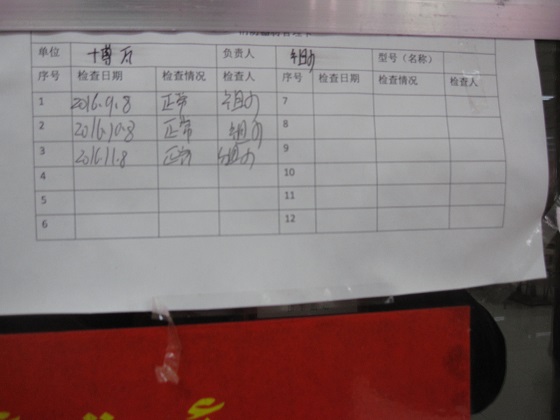 单位 博万 负责人 型号（名称）
序号 检查日期 检查情况 检查人 序号 检查日期 检查情况 检查人
1 2016.9.8 正常 7
2 2016.10.8 正常 8
3 2016.11.8 正常 9
4 10
5 11
6 12